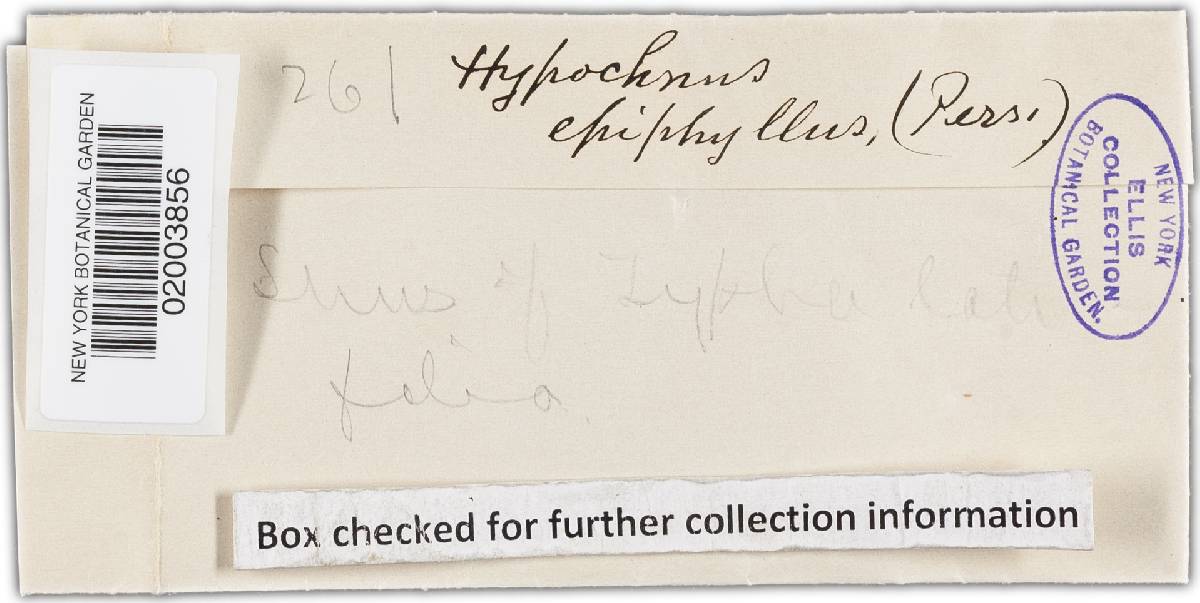 261
Hypochnus
epiphyllus, (Pers.)
NEW YORK BOTANICAL GARDEN
02003856
NEW YORK
ELLIS
COLLECTION
BOTANICAL GARDEN.
of Typha lati
folia
Box checked for further collection information